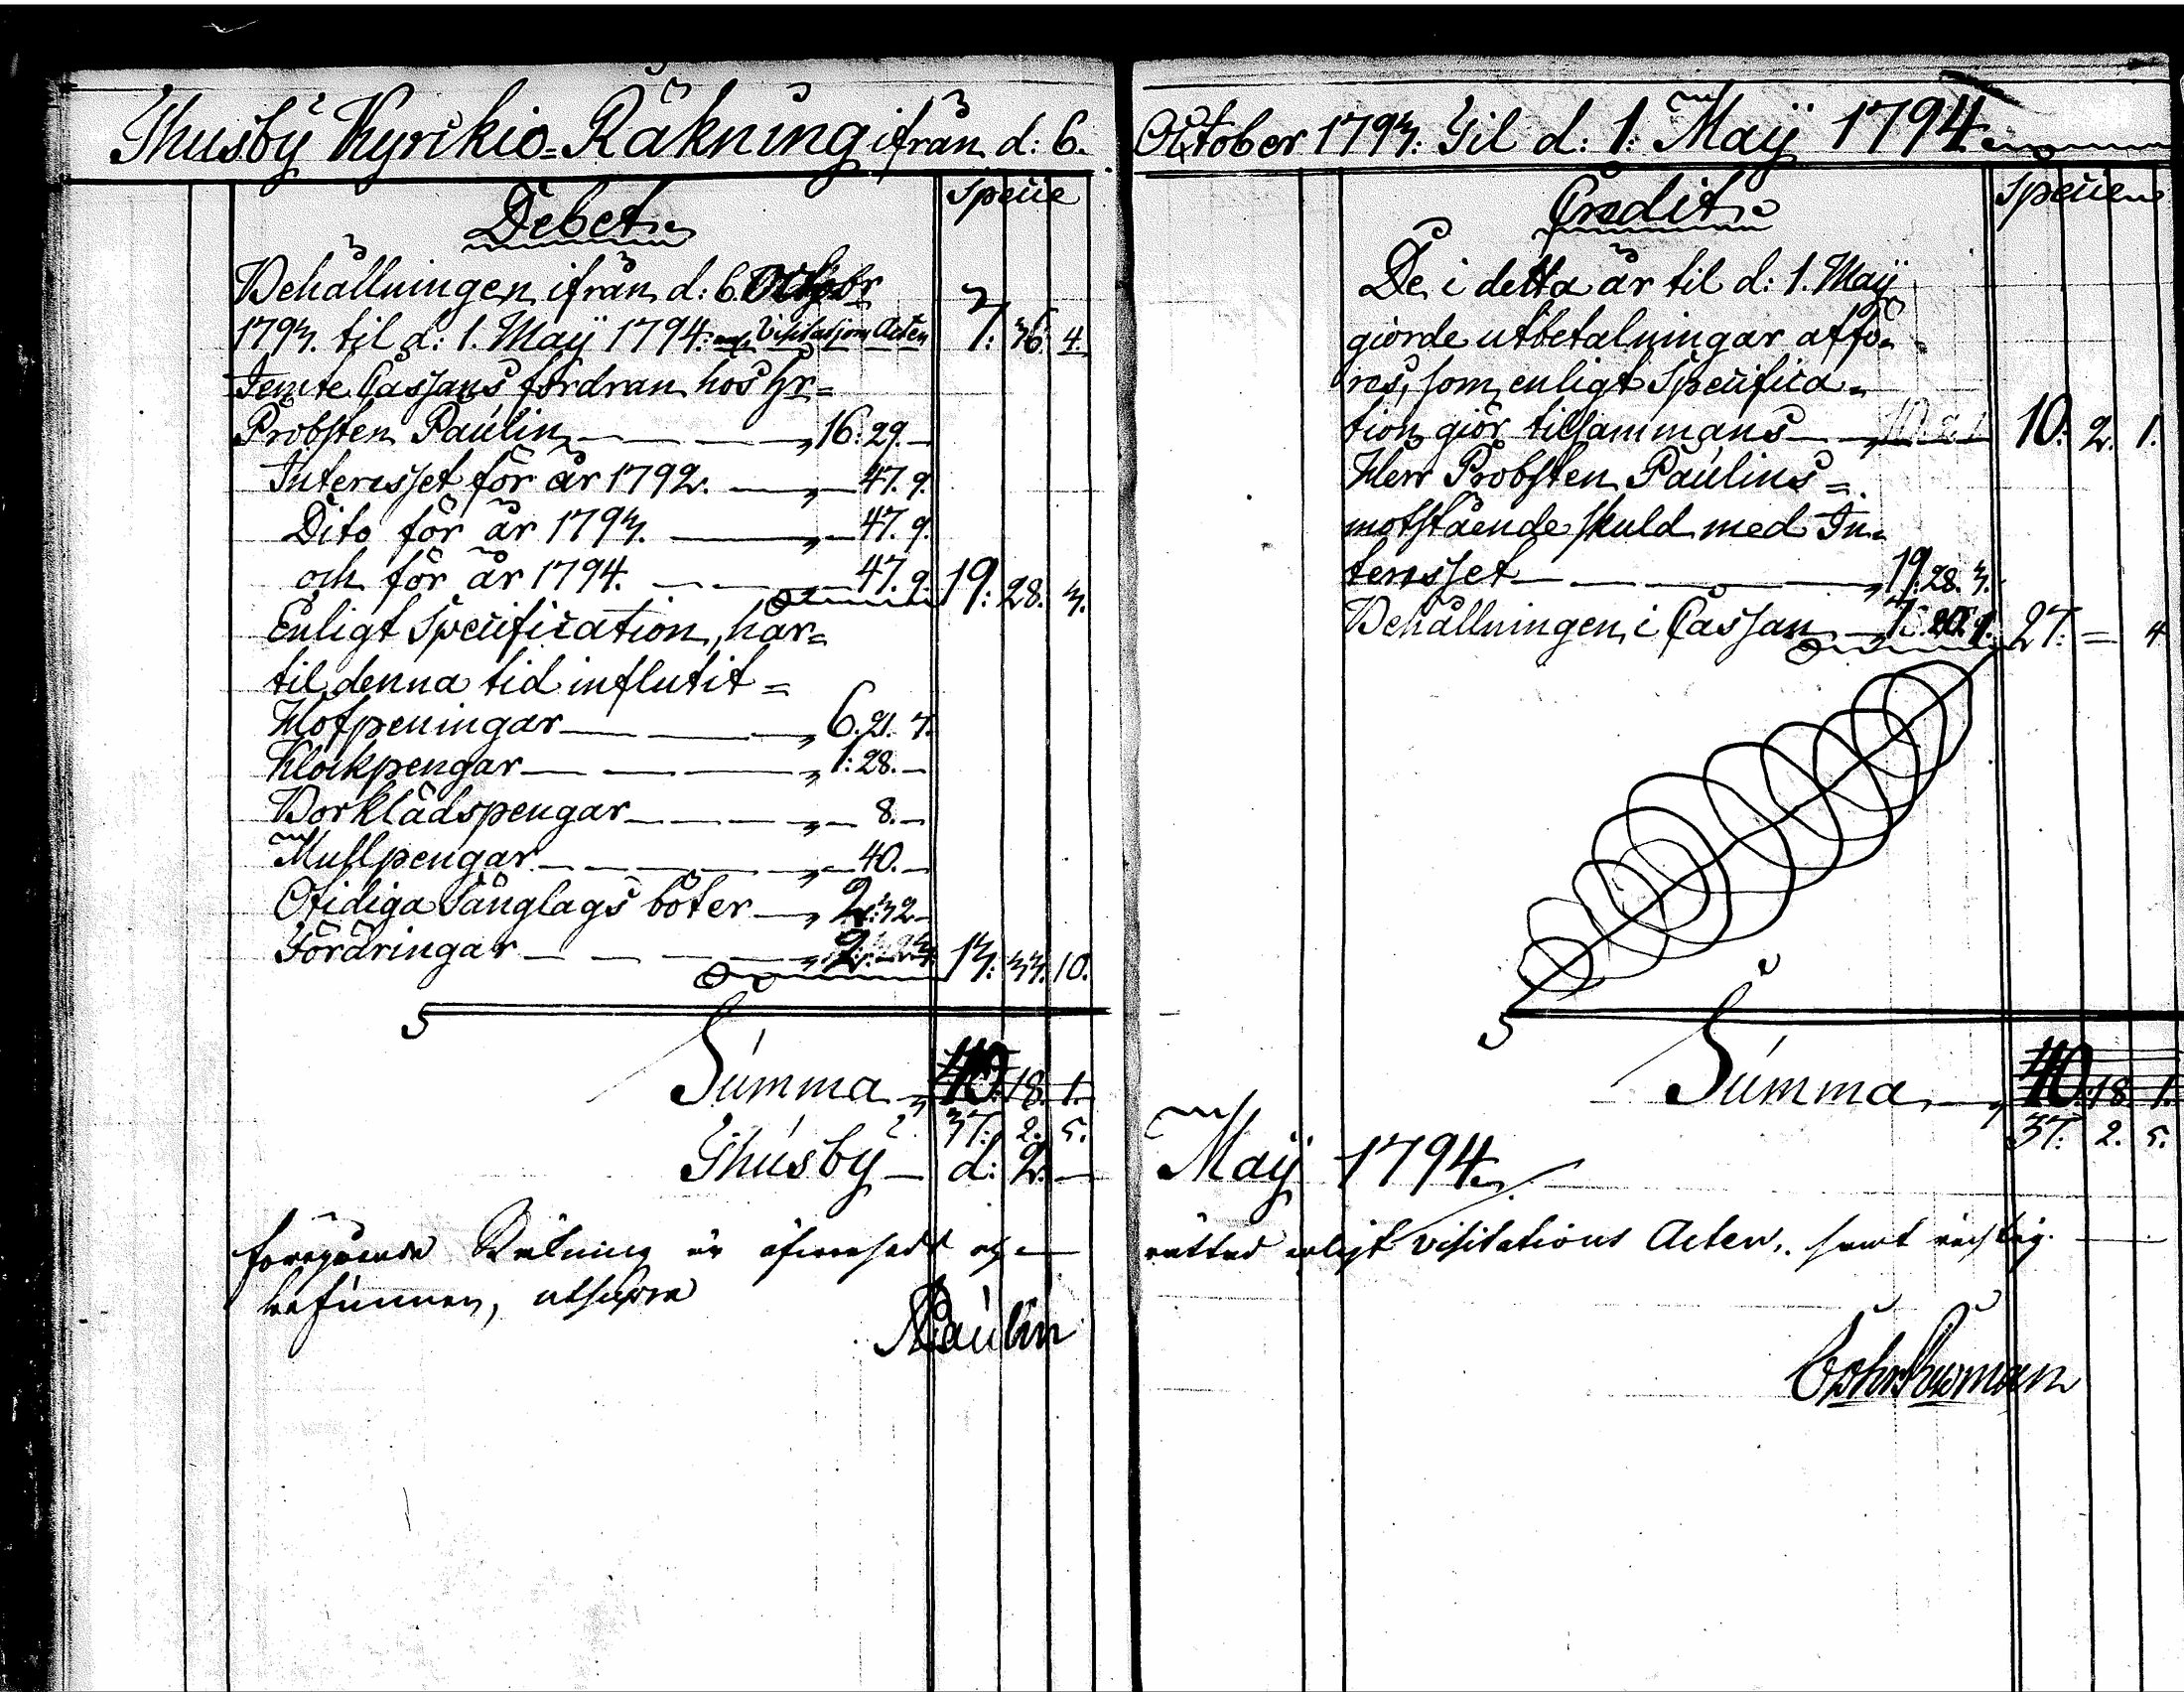 Thusby Kyrkio-Räkning ifrån d: 6.
Specie
Debet
Behållningen ifrån d: 6. Octobr
1793. til d: 1. Maÿ 1794. Visitations Acten 7: 36. 4.
Temte Cassans fordran hos Hr=
Probsten Paulin 16: 29.
Interesset för år 1792. 47. 9.
Dito för år 1793. 47. 9.
och för år 1794. 47. 9. 19: 28. 3.
Enligt Specification, har=
til denna tid influtit =
Hofpeningar 6. 21. 7.
Klockpengar 1: 28.
Borklädspengar 8.
Mullpengar 40.
Otidiga Sänglags böter 2: 32
Föräringar 13: 33. 10.
Summa 40: 18. 1.
37: 2. 5.
Thusby d: 2.
föregående Räkning är
befunnen, utsupra
Paulin
October 1793. Til d: 1. Maÿ 1794.
Specie
Credit
De i detta år til d: 1. Maÿ
giorde utbetalningar affö=
res, som enligt Specifica=
tion giör tillsammans 10: 2. 1.
Herr Probsten Paulins =
motstående skuld med In=
teresset 19: 28. 3.
Behållningen i Cassan 7. 20. 1. 27: = 4
Summa 40: 18. 1.
37: 2. 5.
Maÿ 1794.
rättad enligt Visitations Acten, samt rigtig.